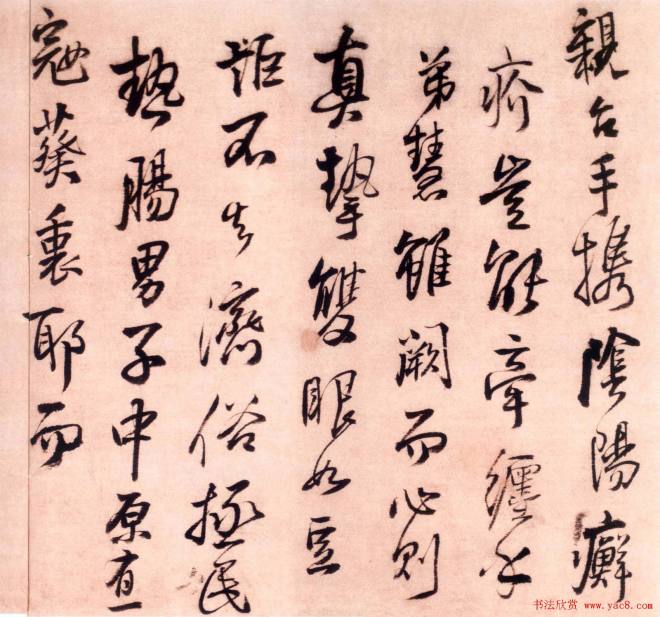 親台手携陰陽癬
疥豈能牽纏乎
弟慧雖闕而心則
真摯雙眼如豆
詎不失濟俗拯民
熱腸男子中原有一
寇葵裏耶而
书法欣赏 www.yac8.com